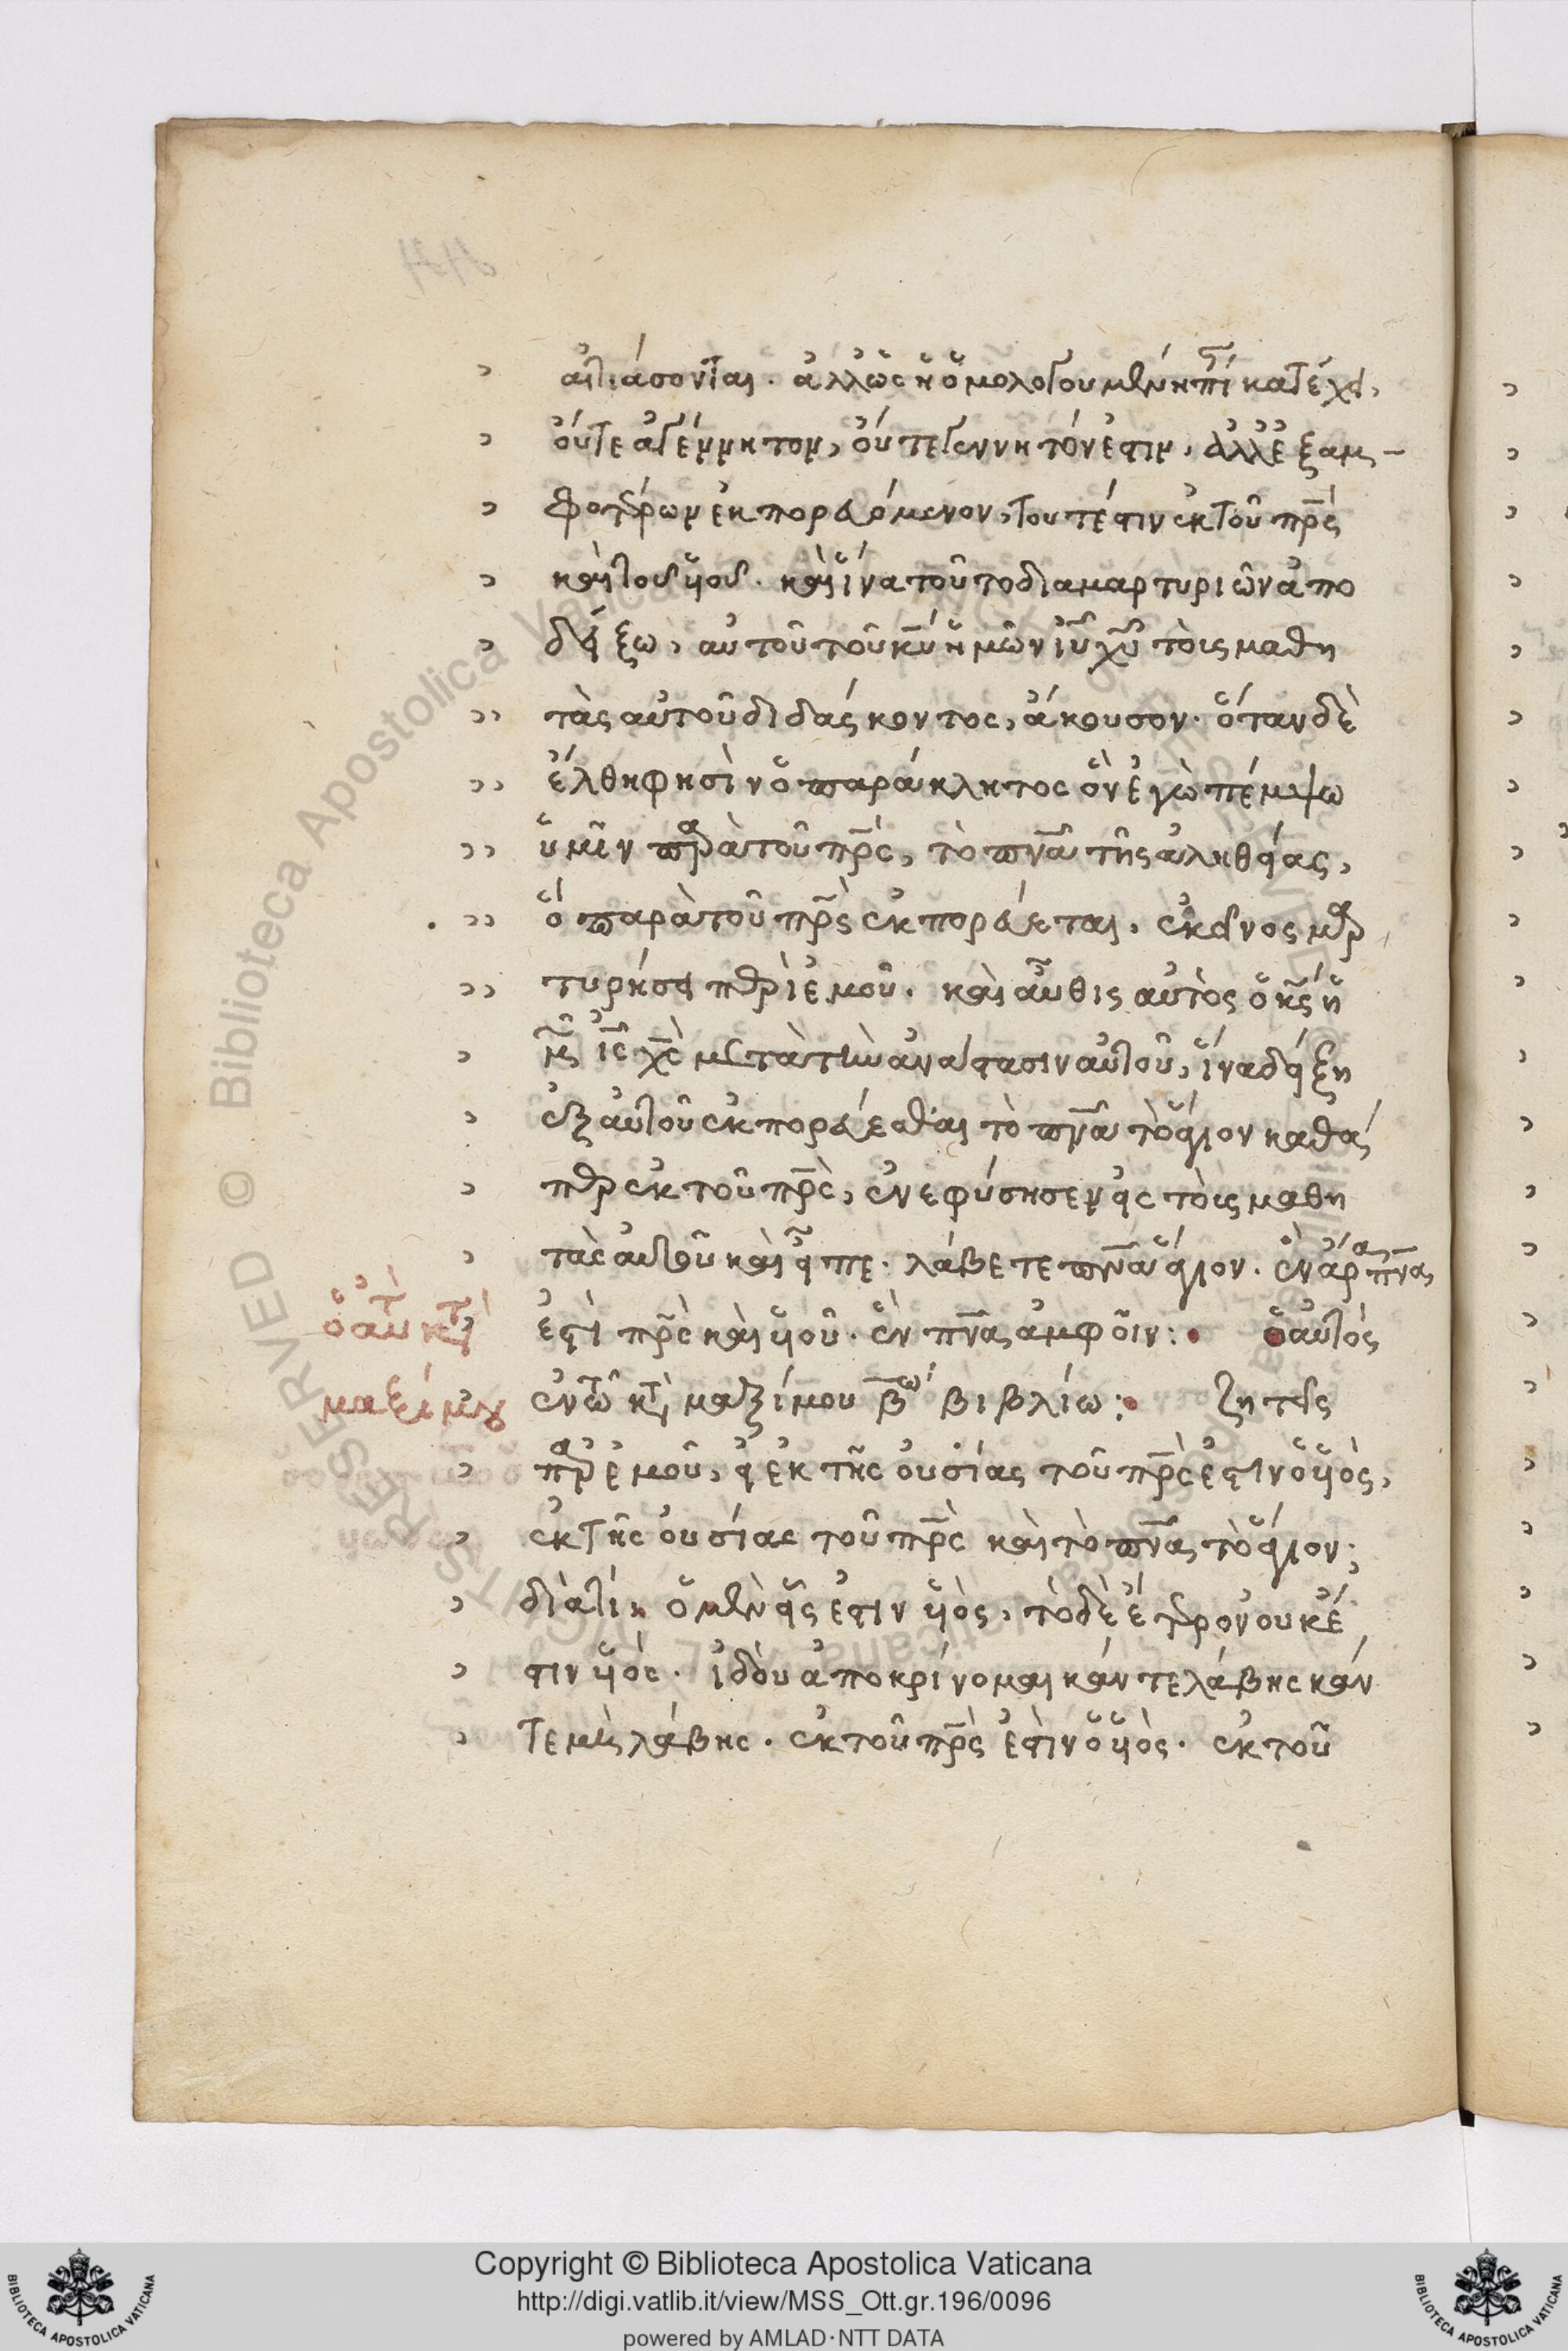 αἰτιάσονται. ἀλλ' ὡς ἡ ὁμολογουμένη πίστι κατέχει,
οὔτε ἀγέννητον, οὔτε γεννητόν ἐστιν, ἀλλ' ἐξ ἀμ-
φοτέρων ἐκπορευόμενον, τουτέστιν ἐκ τοῦ πρς
καὶ τοῦ υἱοῦ. καὶ ἵνα τοῦτο διὰ μαρτυριῶν ἀπο
δείξω, αὐτοῦ τοῦ κυ ἡμῶν ιυ χυ τοὺς μαθη
τὰς αὐτοῦ διδάσκοντος, ἄκουσον. ὅταν δὲ
ἔλθη φησὶν ὁ παράκλητος ὃν ἐγὼ πέμψω
ὑμῖν παρὰ τοῦ πρς, τὸ πνα τῆς ἀληθείας,
ὃ παρὰ τοῦ πρς ἐκπορεύεται, ἐκεῖνος μαρ
τυρήσει περὶ ἐμοῦ. καὶ αὖθις αὐτὸς ὁ κς ἡ
μῶν ις χς μετὰ τὴν ἀνάστασιν αὐτοῦ, ἵνα δείξη
ἐξ αὐτοῦ ἐκπορεύεσθαι τὸ πνα τὸ ἅγιον καθά
περ ἐκ τοῦ πρς, ἐνεφύσησεν εἰς τοὺς μαθη
τὰς αὐτοῦ καὶ εἶπε. λάβετε πνα ἅγιον. ἓν ἄρα πνα
ἐστὶ πρς καὶ υἱοῦ. ἓν πνα ἀμφοῖν: ὁ αὐτὸς
ὁ αὐτ κτ
ἐν τῶ κτ μαξίμου βω βιβλίω: ζητεῖς
μαξίμου
παρ' ἐμοῦ, εἰ ἐκ τῆς οὐσίας τοῦ πρς ἐστιν ὁ υἱὸς,
ἐκ τῆς οὐσίας τοῦ πρς καὶ τὸ πνα τὸ ἅγιον;
διὰ τί ὁ μὲν εἷς ἐστιν υἱὸς, τὸ δὲ ἕτερον οὐκ ἔ
στιν υἱὸς. ἰδοὺ ἀποκρίνομαι κάν τε λάβης κάν
τε μὴ λάβης. ἐκ τοῦ πρς ἐστὶν ὁ υἱὸς. ἐκ τοῦ
Copyright © Biblioteca Apostolica Vaticana
http://digi.vatlib.it/view/MSS_Ott.gr.196/0096
powered by AMLAD·NTT DATA